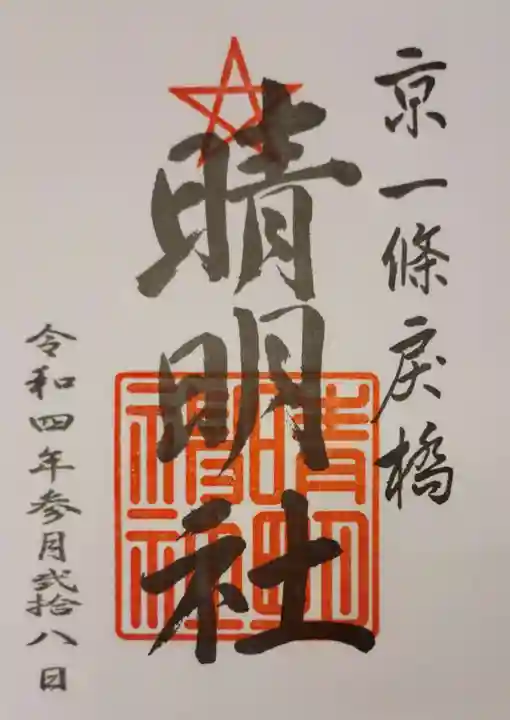 京一條戻橋
晴明社
晴明
神社
令和四年参月弐拾八日